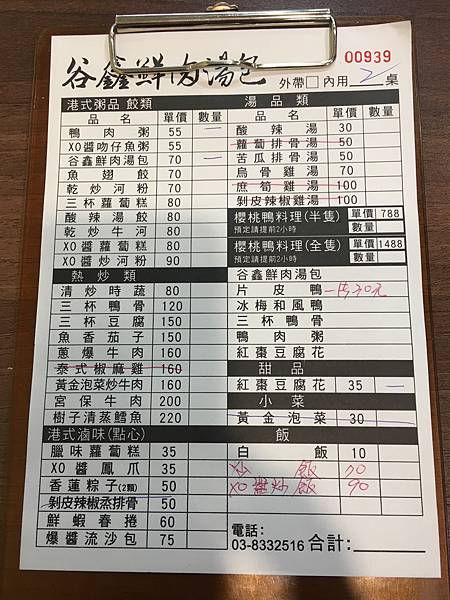 00939
谷鑫鮮肉湯包 外帶□ 內用 2 桌
港式粥品 餃類
品名 單價 數量
鴨肉粥 55 一
XO醬吻仔魚粥 55
谷鑫鮮肉湯包 70 一
魚翅餃 70
乾炒河粉 70
三杯蘿蔔糕 80
酸辣湯餃 80
乾炒牛河 80
XO醬蘿蔔糕 80
XO醬炒河粉 90
熱炒類
清炒時蔬 80
三杯鴨骨 120
三杯豆腐 150
魚香茄子 150
蔥爆牛肉 160
泰式椒麻雞 160
黃金泡菜炒牛肉 160
宮保牛肉 200
樹子清蒸鱈魚 220
港式滷味(點心)
臘味蘿蔔糕 35
XO醬鳳爪 35
香蓮粽子(2顆) 50
剝皮辣椒蒸排骨 50
鮮蝦春捲 60
爆醬流沙包 75
湯品類
品名 單價 數量
酸辣湯 30
蘿蔔排骨湯 50
苦瓜排骨湯 50
烏骨雞湯 70
庶筍雞湯 100
剝皮辣椒雞湯 100
櫻桃鴨料理(半隻) 單價 788
預定請提前2小時 數量
櫻桃鴨料理(全隻) 單價 1488
預定請提前2小時 數量
谷鑫鮮肉湯包
片皮鴨 一片30元
冰梅和風鴨
三杯鴨骨
鴨肉粥
紅棗豆腐花
甜品
紅棗豆腐花 35 一
小菜
黃金泡菜 30
飯
白飯 10
炒飯 70
XO醬炒飯 90
電話:
03-8332516 合計: